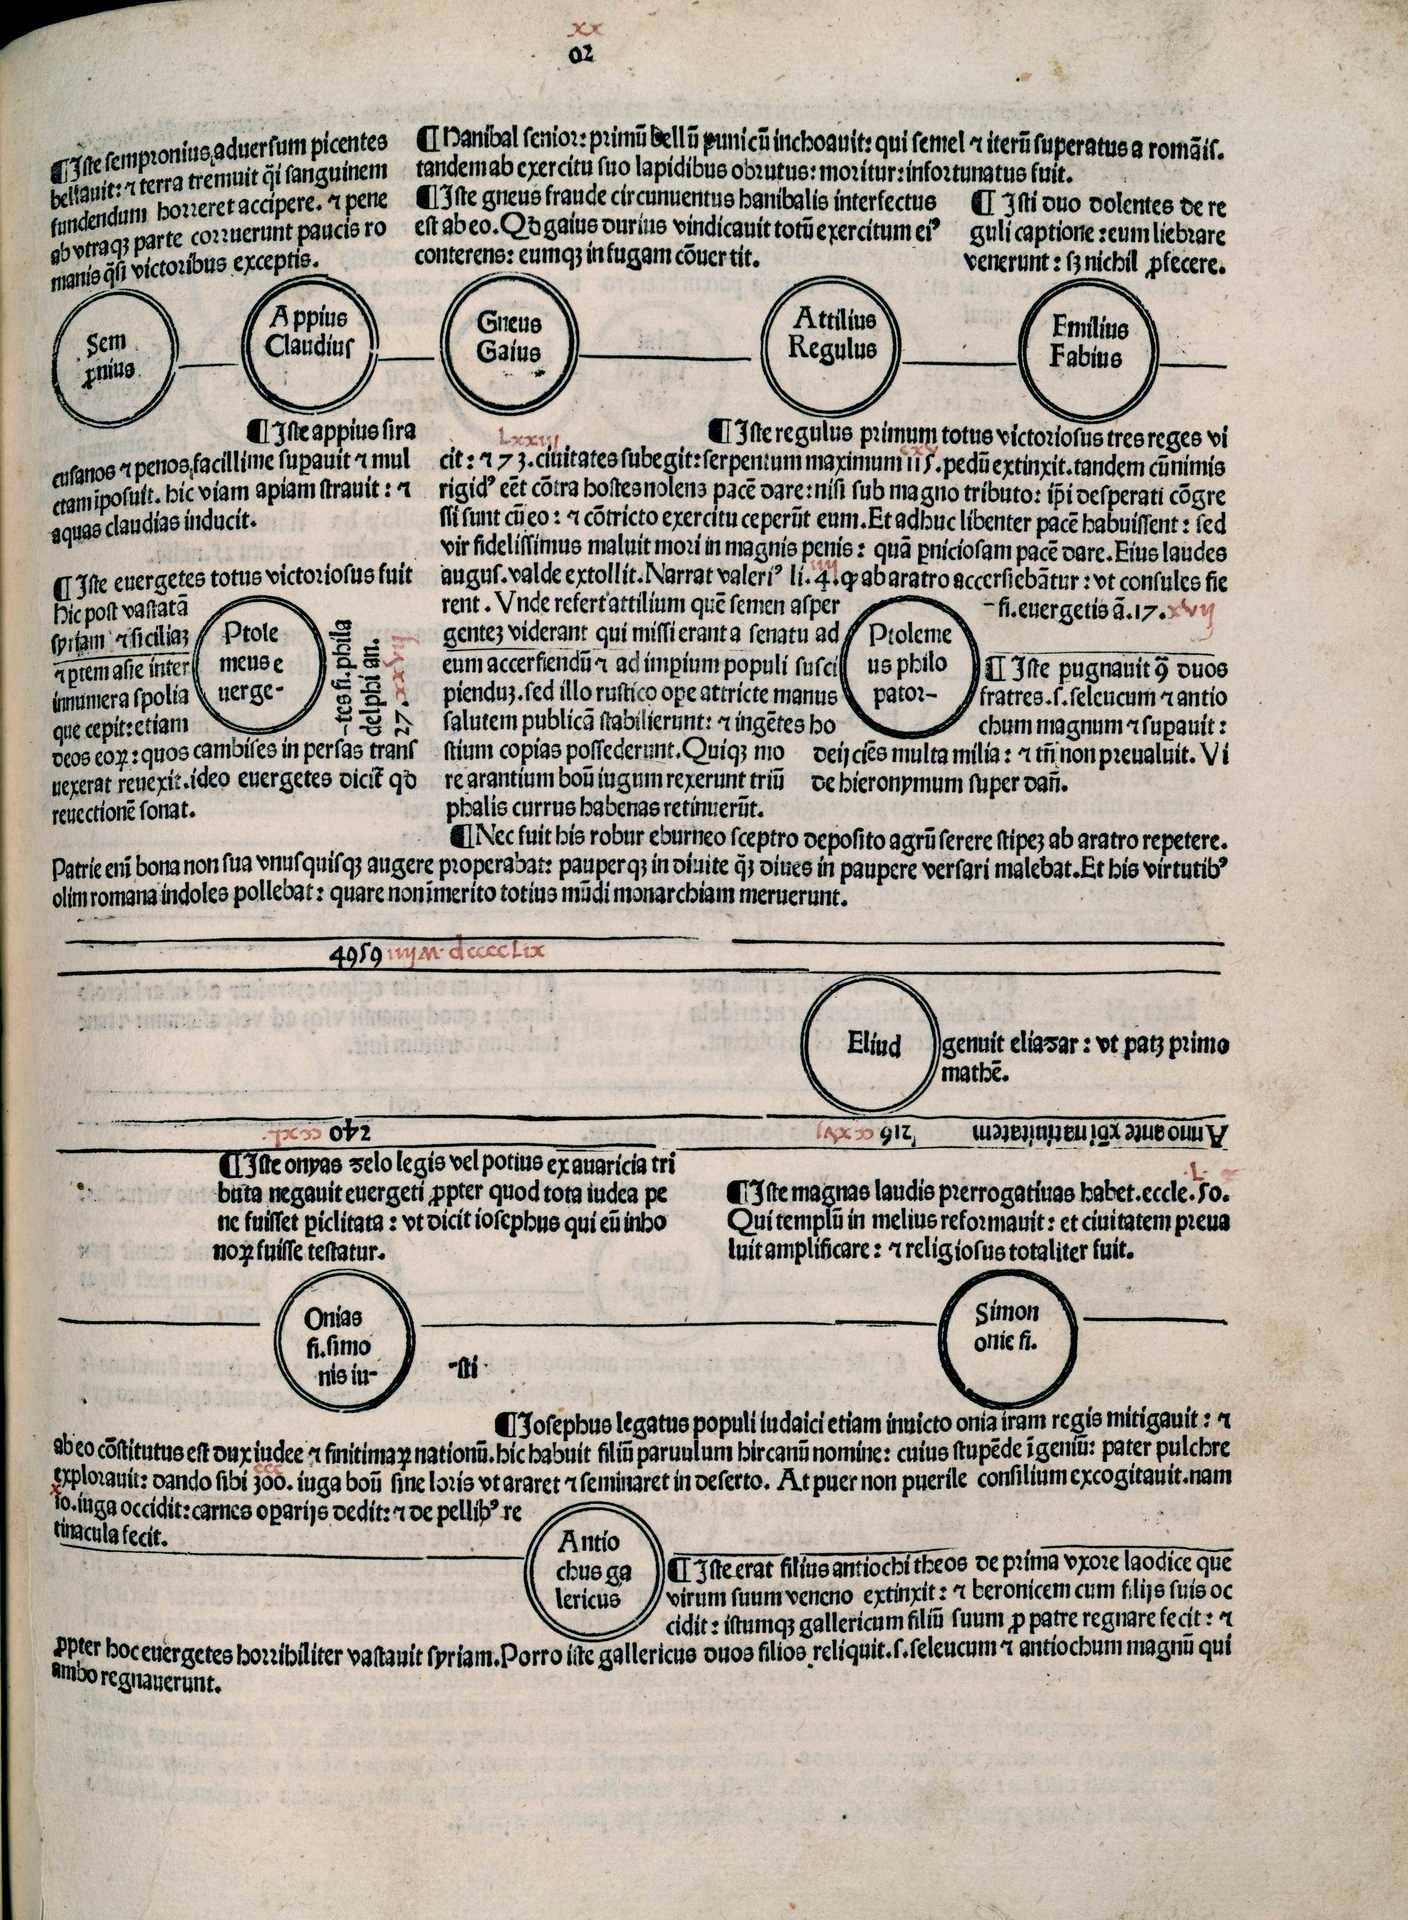 xx
02
¶ Iste sempronius aduersum picentes
bellauit: ⁊ terra tremuit q̄si sanguinem
fundendum horreret accipere. ⁊ pene
ab vtraqꝫ parte corruerunt paucis ro
manis q̄si victoribus exceptis.
¶ Hanibal senior: primū bellū punicū inchoauit: qui semel ⁊ iterū superatus a romāis.
tandem ab exercitu suo lapidibus obrutus: moritur: infortunatus fuit.
¶ Iste gneus fraude circunuentus hanibalis interfectus
est ab eo. Qd̄ gaius durius vindicauit totū exercitum eiꝰ
conterens: eumqꝫ in fugam cōuertit.
¶ Isti duo dolentes de re
guli captione: eum liebrare
venerunt: sꝫ nichil ꝓfecere.
Sem
ꝓnius
Appius
Claudius
Gneus
Gaius
Attilius
Regulus
Emilius
Fabius
¶ Iste appius sira
cusanos ⁊ penos facillime suꝑauit ⁊ mul
ctam iposuit. hic viam apiam strauit: ⁊
aquas claudias inducit.
¶ Iste regulus primum totus victoriosus tres reges vi
Lxxiij
cxx
cit: ⁊ 73. ciuitates subegit: serpentum maximum 115. pedū extinxit. tandem cū nimis
rigidꝰ eēt cōtra hostes nolens pacē dare: nisi sub magno tributo: ip̄i desperati cōgre
ssi sunt cū eo: ⁊ cōtricto exercitu ceperūt eum. Et adhuc libenter pacē habuissent: sed
vir fidelissimus maluit mori in magnis penis: quā ꝑniciosam pacē dare. Eius laudes
iiij
augus. valde extollit. Narrat valeriꝰ li. 4. ꝙ ab aratro accersiebātur: vt consules fie
rent. Vnde refert attilium quē semen asper
genteꝫ viderant qui missi erant a senatu ad
eum accersiendū ⁊ ad impium populi susci
pienduꝫ. sed illo rustico oꝑe attricte manus
salutem publicā stabilierunt: ⁊ ingētes ho
stium copias possederunt. Quiqꝫ mo
re arantium boū iugum rexerunt triū
phalis currus habenas retinuerūt.
¶ Iste euergetes totus victoriosus fuit
hic post vastatā
syriam ⁊ siciliaꝫ
⁊ ꝑtem asie inter
innumera spolia
que cepit: etiam
deos eoꝝ: quos cambises in persas trans
uexerat reuexit. ideo euergetes dicit̄ qd̄
reuectionē sonat.
Ptole
meus e
uerge-
-tes fi. phila
delphi an.
27. xxvij
Ptoleme
us philo
pator-
-fi. euergetis ā. 17. xvij
¶ Iste pugnauit ꝯ duos
fratres. s. seleucum ⁊ antio
chum magnum ⁊ suꝑauit:
deijciēs multa milia: ⁊ tn̄ non preualuit. Vi
de hieronymum super dan̄.
¶ Nec fuit his robur eburneo sceptro deposito agrū serere stipeꝫ ab aratro repetere.
Patrie enī bona non sua vnusquisqꝫ augere properabat: pauperqꝫ in diuite q̄ꝫ diues in paupere versari malebat. Et his virtutibꝰ
olim romana indoles pollebat: quare non īmerito totius mūdi monarchiam meruerunt.
4959 iiijM. dccccLix
Eliud
genuit eliaꝫar: vt patꝫ primo
mathē.
240 ccxl.
Anno ante xp̄i natiuitatem 216 ccxvj
¶ Iste onyas zelo legis vel potius ex auaricia tri
buta negauit euergeti ꝓpter quod tota iudea pe
ne fuisset ꝑiclitata: vt dicit iosephus qui eū inho
noꝝ fuisse testatur.
L.
¶ Iste magnas laudis prerrogatiuas habet. eccle. 50.
Qui templū in melius reformauit: et ciuitatem preua
luit amplificare: ⁊ religiosus totaliter fuit.
Onias
fi. simo
nis iu-
-sti
Simon
onie fi.
¶ Iosephus legatus populi iudaici etiam inuicto onia iram regis mitigauit: ⁊
ab eo cōstitutus est dux iudee ⁊ finitimaꝝ nationū. hic habuit filiū paruulum hircanū nomine: cuius stupēde īgeniū: pater pulchre
ccc
explorauit: dando sibi 300. iuga boū sine loris vt araret ⁊ seminaret in deserto. At puer non puerile consilium excogitauit. nam
x
10. iuga occidit: carnes oꝑarijs dedit: ⁊ de pellibꝰ re
tinacula fecit.
Antio
chus ga
lericus
¶ Iste erat filius antiochi theos de prima vxore laodice que
virum suum veneno extinxit: ⁊ beronicem cum filijs suis oc
cidit: istumqꝫ gallericum filiū suum ꝓ patre regnare fecit: ⁊
ꝓpter hoc euergetes horribiliter vastauit syriam. Porro iste gallericus duos filios reliquit. s. seleucum ⁊ antiochum magnū qui
ambo regnauerunt.